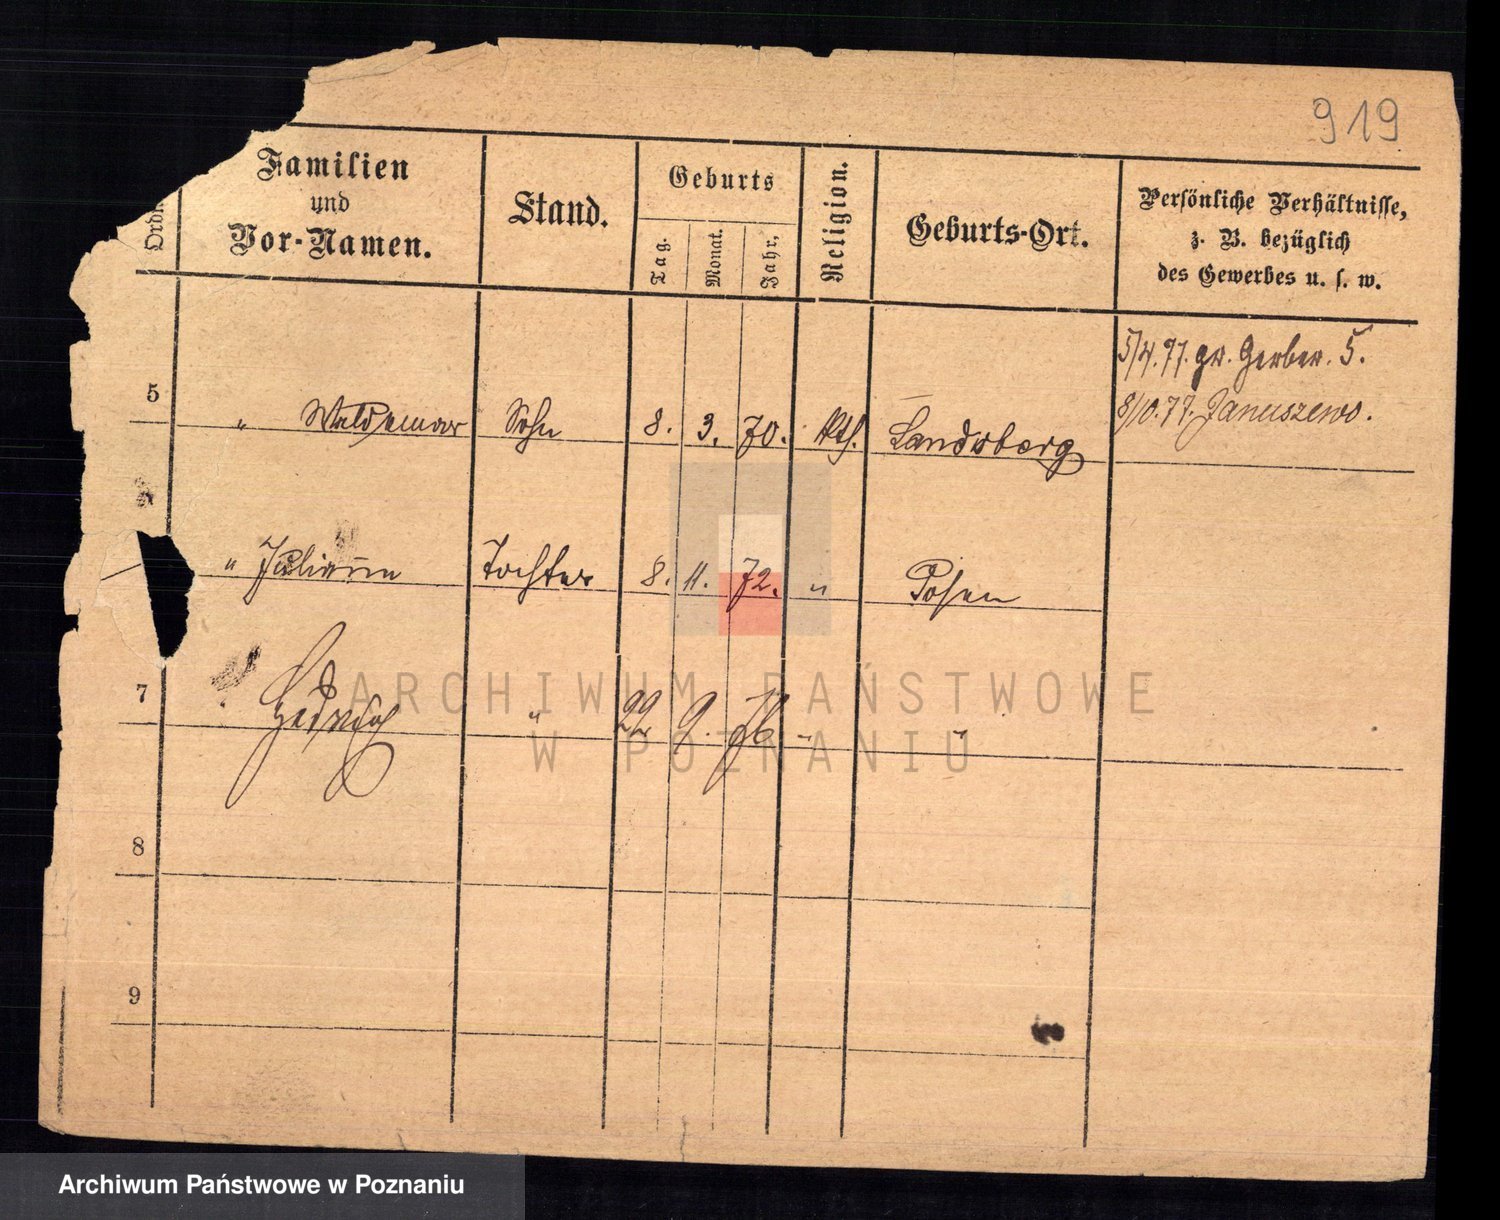 919
Ordn
Familien
und
Vor-Namen.
Stand.
Geburts
Tag.
Monat.
Jahr,
Religion.
Geburts-Ort.
Persönliche Verhältnisse,
z. B. bezüglich
des Gewerbes u. s. w.
5/4.77. gr. Gerber. 5.
8/10.77. Januszewo.
5 " Waldemar Sohn 8. 3. 70. kth. Landsberg
" Juliane Tochter 8. 11. 72. " Posen
7 Hedwig " 22 9. 76 " "
8
9
ARCHIWUM PAŃSTWOWE
W POZNANIU
Archiwum Państwowe w Poznaniu